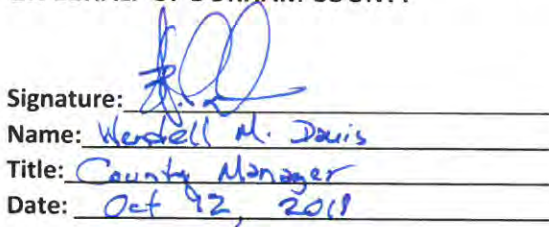 Signature:
Name: Wendell M. Davis
Title: County Manager
Date: Oct 12, 201